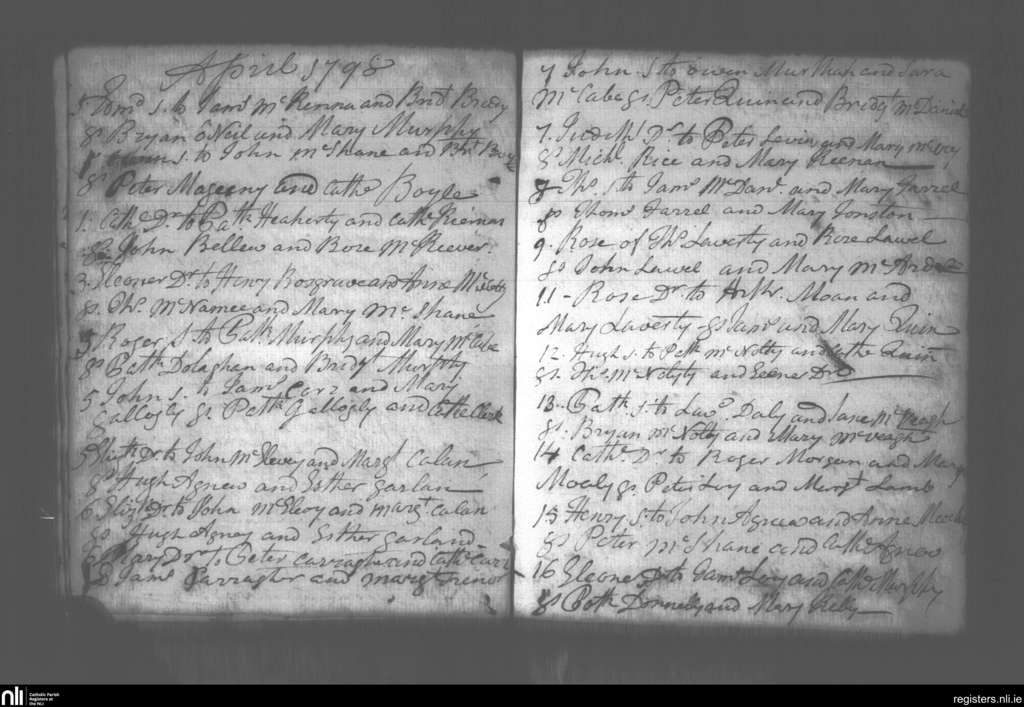 April 1798
5 s. to Jams McKenna and Brid Brady
gs Bryan ONeil and Mary Murphy
s. to John McShane and Brt
gs Peter Mageeny and Cathe Boyle
1. Cathe Dr to Patk Heaherty and Cathe
gs John Bellew and Rose McKeever
3. Eleoner Dr to Henry Rosgrave and Anne
gs Ths McNamee and Mary McShane
5 Roger S to Patk Murphy and Mary McCabe
gs Patk Dolaghan and Bridgt Murphy
5 John s. to Jams Carr and Mary
Gallogly gs Patk Gallogly and Cathe Clark
5 Dr to John McElevey and Margt Calan
gs Hugh Agnew and Esther Garlan
6 Elizt Dr to John McElevy and Margt Calan
gs Hugh Agney and Esther Garland
6 Mary Dr to Peter Carragher and Cathe Carr
gs Jams Carragher and Margt
7 John S to Owen Murthah and Sara
McCabe gs. Peter Quin and Bridgt McDaniel
7. Judith Dr. to Peter Levins and Mary McEvoy
gs Michl. Rice and Mary Keenan
8 Ths. S to Jams McDanl. and Mary Farrel
gs Thoms Farrel and Mary Jonston
9. Rose of Ths Laverty and Rose Lawel
gs John Lawel and Mary McArdle
11 - Rose Dr. to Arthr. Moan and
Mary Laverty gs Jams and Mary Quin
12. Hugh s. to Patk McNolty and Cathe Quin
gs. Ths. McNolyty and
13. Patk s. to Lawe Daly and Jane McVeagh
gs. Bryan McNolty and Mary McVeagh
14 Cathe. Dr to Roger Morgan and Mary
Mooly gs. Peter Levy and Margt Lamb
15 Henry S. to John Agnew and Anne
gs Peter McShane and Cathe Agnew
16 Eleoner Dr to Jams Levy and Cathe Murphy
gs Patk Donnelly and Mary Reily
nli
Catholic Parish
Registers at
the NLI
registers.nli.ie